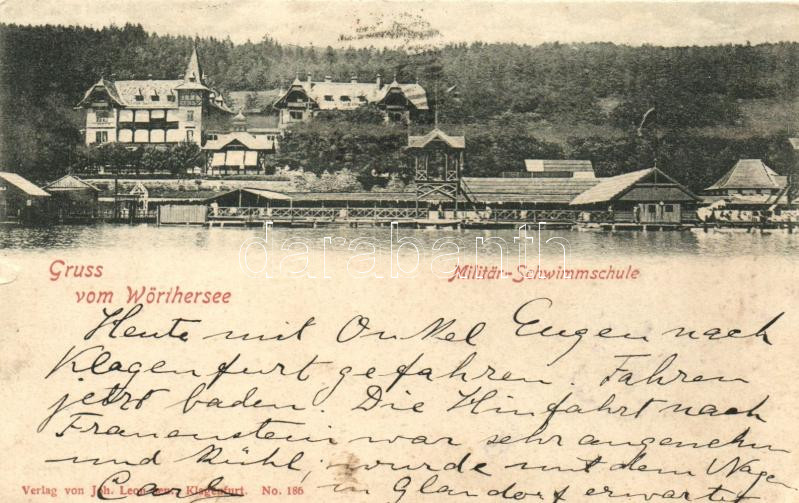 Gruss
vom Wörthersee
Militär-Schwimmschule
darabanth
Heute mit Onkel Eugen nach
Klagenfurt gefahren. Fahren
jetzt baden. Die Hinfahrt nach
Frauenstein war sehr angenehm
und kühl; wurde mit dem Wagen
in Glandorf erwartet
Verlag von Joh. Leon sen., Klagenfurt. No. 186